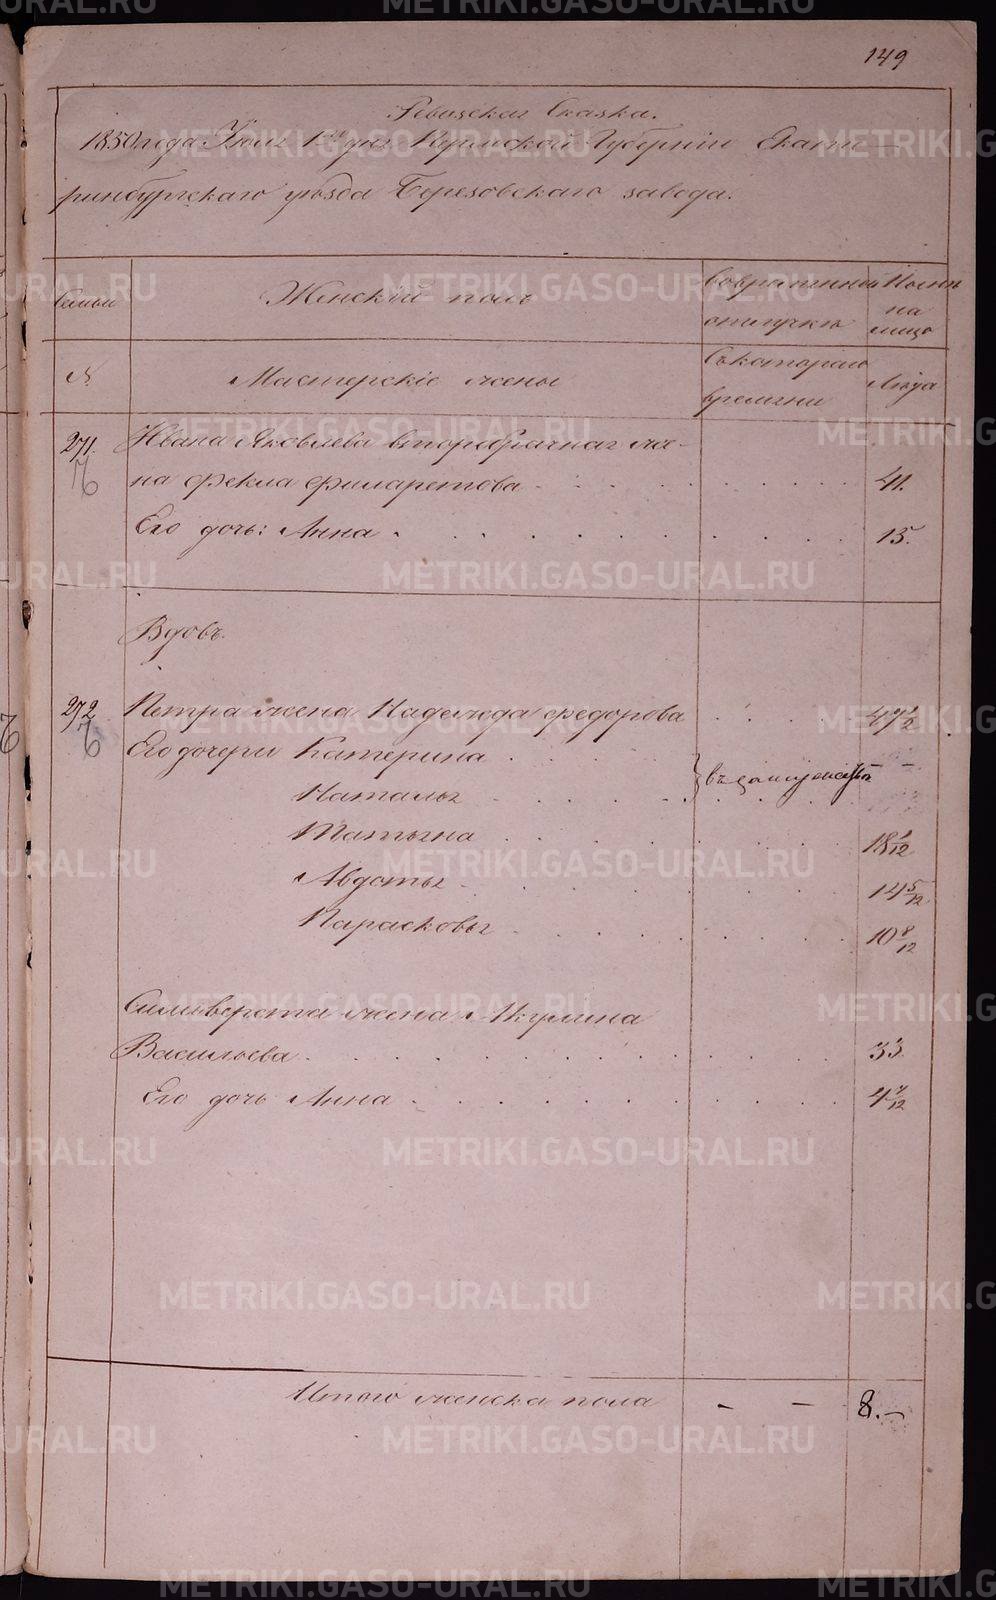 149
Ревизская Сказка.
1850 года Июля 1го дня Пермской Губернiи Екате-
ринбургскаго уѣзда Березовскаго завода.
Семьи
Женскiй полъ
Во временной
отлучкѣ
Нынѣ
на
лицо
№
Мастерскiе жены
Съ котораго
времени
Лѣта
271.
Ивана Яковлева вторабрачная же-
на Фекла Филаретова 41.
Его дочь: Анна 15.
Вдовъ.
272
Петра жена Надежда Федорова
Его дочери Катерина
Наталья
въ замужествѣ
Татьяна 18 1/12
Авдотья 14 5/12
Парасковья 10 8/12
Силиверста жена Акулина
Васильева 33
Его дочь Анна
Итого женска пола - - 8.-
METRIKI.GASO-URAL.RU